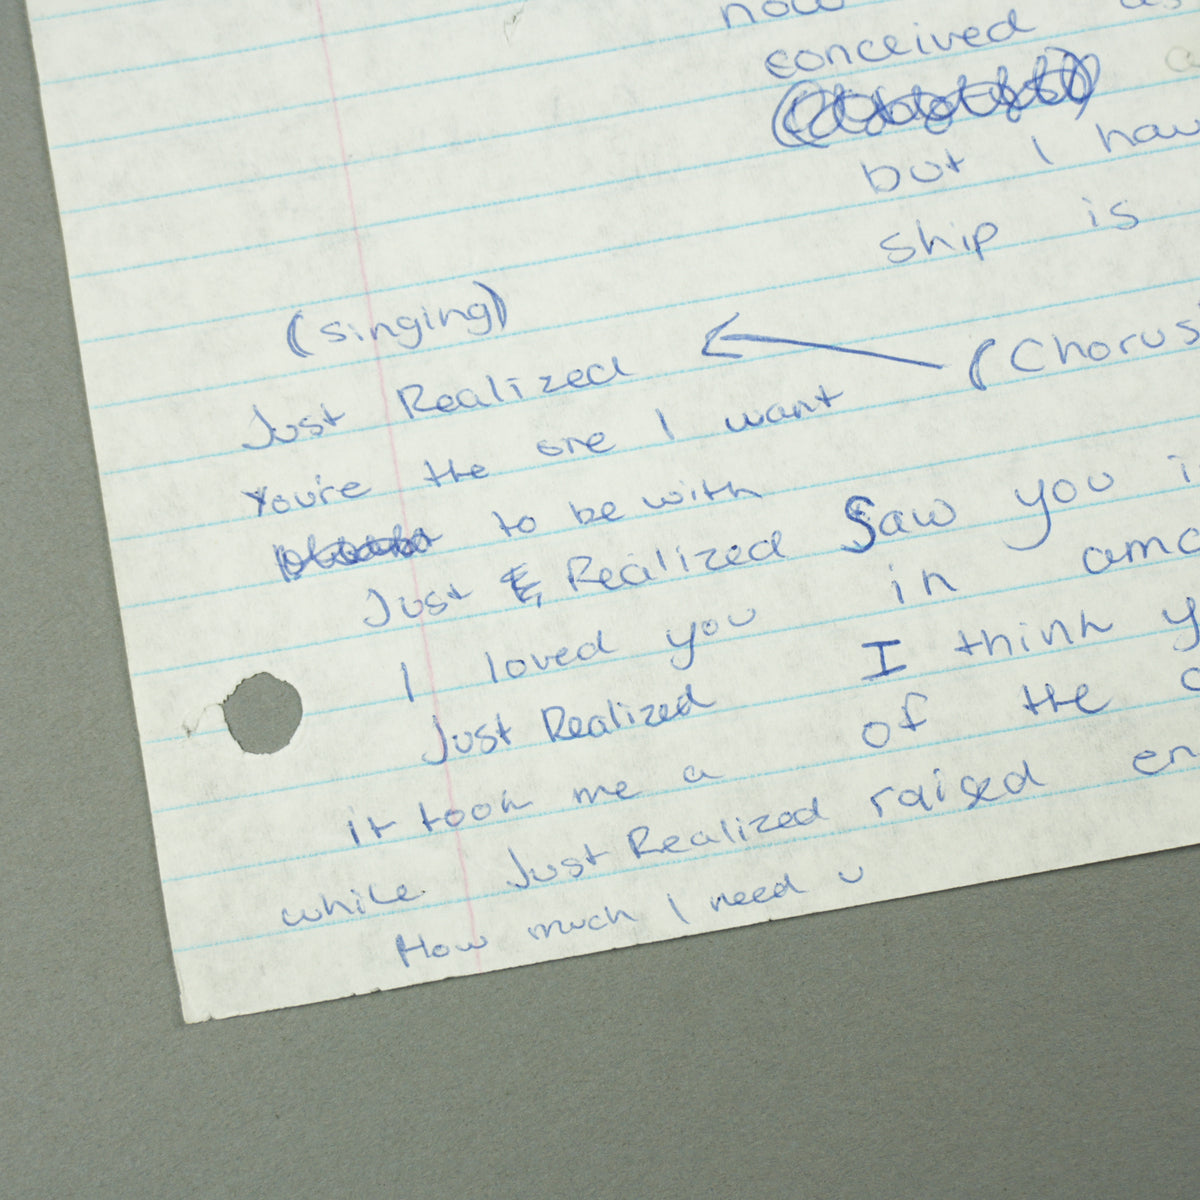 now
conceived
but I hav
ship is
(singing)
(Chorus
Just Realized
You're the one I want
to be with
Just Realized
I loved you
Just Realized
it took me a
while Just Realized
How much I need u
Saw you i
in ama
I think y
of the
raised en